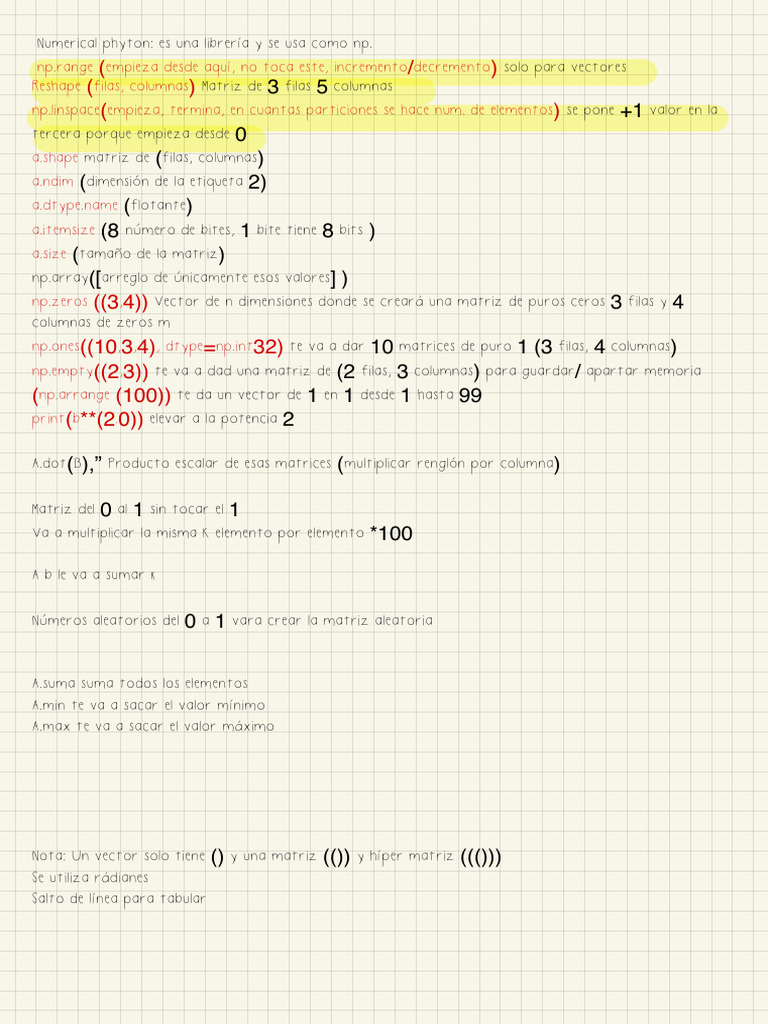 Numerical phyton: es una librería y se usa como np.
np.range (empieza desde aquí, no toca este, incremento/decremento) solo para vectores
Reshape (filas, columnas) Matriz de 3 filas 5 columnas
np.linspace(empieza, termina, en cuantas particiones se hace num. de elementos) se pone +1 valor en la
tercera porque empieza desde 0
a.shape matriz de (filas, columnas)
a.ndim (dimensión de la etiqueta 2)
a.dtype.name (flotante)
a.itemsize (8 número de bites, 1 bite tiene 8 bits )
a.size (tamaño de la matriz)
np.array([arreglo de únicamente esos valores] )
np.zeros ((3,4)) Vector de n dimensiones donde se creará una matriz de puros ceros 3 filas y 4
columnas de zeros m
np.ones((10,3,4), dtype=np.int32) te va a dar 10 matrices de puro 1 (3 filas, 4 columnas)
np.empty((2,3)) te va a dad una matriz de (2 filas, 3 columnas) para guardar/ apartar memoria
(np.arrange (100)) te da un vector de 1 en 1 desde 1 hasta 99
print(b**(2.0)) elevar a la potencia 2
A.dot(B),” Producto escalar de esas matrices (multiplicar renglón por columna)
Matriz del 0 al 1 sin tocar el 1
Va a multiplicar la misma K elemento por elemento *100
A b le va a sumar k
Números aleatorios del 0 a 1 vara crear la matriz aleatoria
A.suma suma todos los elementos
A.min te va a sacar el valor mínimo
A.max te va a sacar el valor máximo
Nota: Un vector solo tiene () y una matriz (()) y híper matriz ((()))
Se utiliza rádianes
Salto de línea para tabular